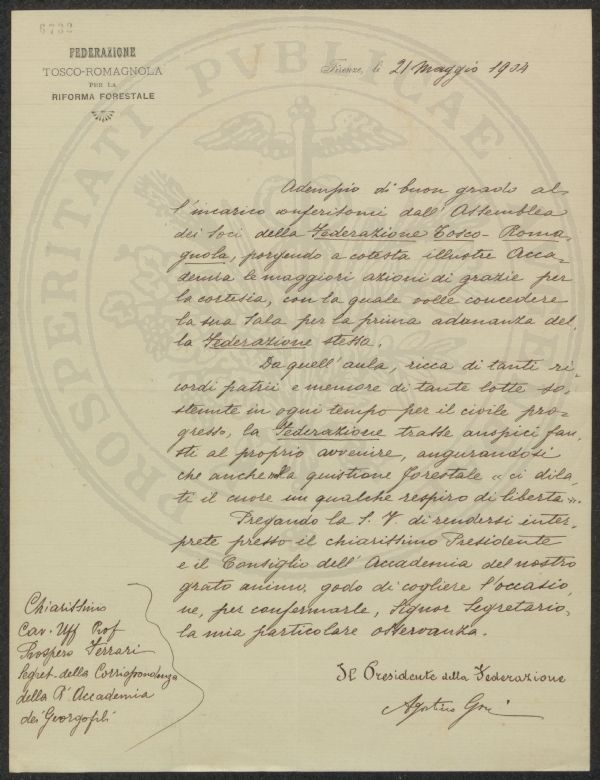 6732
FEDERAZIONE
TOSCO-ROMAGNOLA
PER LA
RIFORMA FORESTALE
Firenze, li 21 Maggio 1904
PROSPERITATI PVBLICAE
Adempio di buon grado al-
l'incarico conferitomi dall'Assemblea
dei Soci della Federazione Tosco-Roma-
gnola, porgendo a cotesta illustre Acca-
demia le maggiori azioni di grazie per
la cortesia, con la quale volle concedere
la sua Sala per la prima adunanza del-
la Federazione stessa.
Da quell'aula, ricca di tanti ri-
cordi patrii e memore di tante lotte so-
stenute in ogni tempo per il civile pro-
gresso, la Federazione trasse auspici fau-
sti al proprio avvenire, augurandosi
che anche la quistione forestale « ci dila-
ti il cuore un qualche respiro di libertà ».
Pregando la S. V. di rendersi inter-
prete presso il chiarissimo Presidente
e il Consiglio dell'Accademia del nostro
grato animo, godo di cogliere l'occasio-
ne, per confermarle, Signor Segretario,
la mia particolare osservanza.
Il Presidente della Federazione
Agostino Gori
Chiarissimo
Cav. Uff Prof
Prospero Ferrari
Segret. della Corrispondenza
della R. Accademia
dei Georgofili